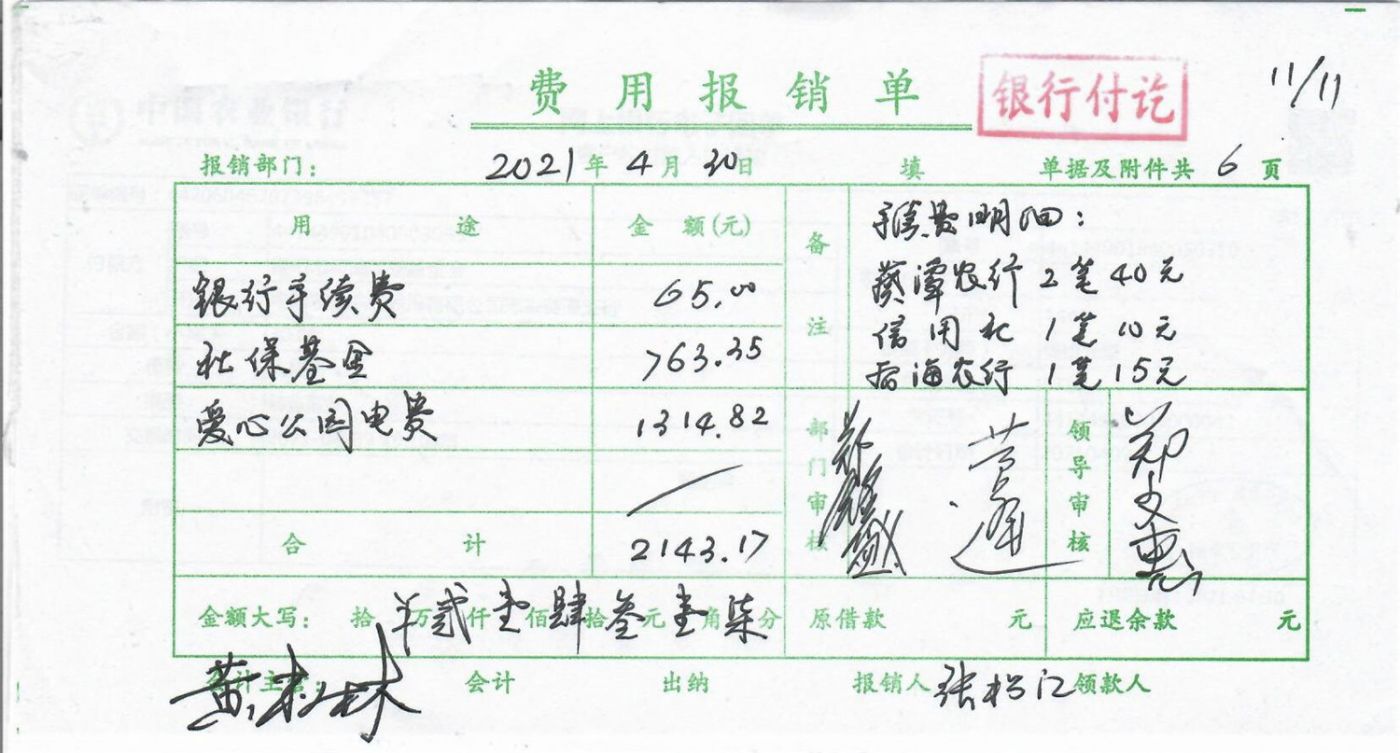 费用报销单
银行付讫
11/11
报销部门： 2021年4月30日 填 单据及附件共 6 页
用 途 金 额(元) 备注
手续费明细：
银行手续费 65.00
葵潭农行 2笔 40元
信用社 1笔 10元
社保基金 763.35
后海农行 1笔 15元
爱心公园电费 1314.82
部门审核
领导审核 郑文惠
合 计 2143.17
金额大写： 拾 万 贰仟 壹佰 肆拾 叁元 壹角 柒分 原借款 元 应退余款 元
会计主管： 会计 出纳 报销人 张松江 领款人